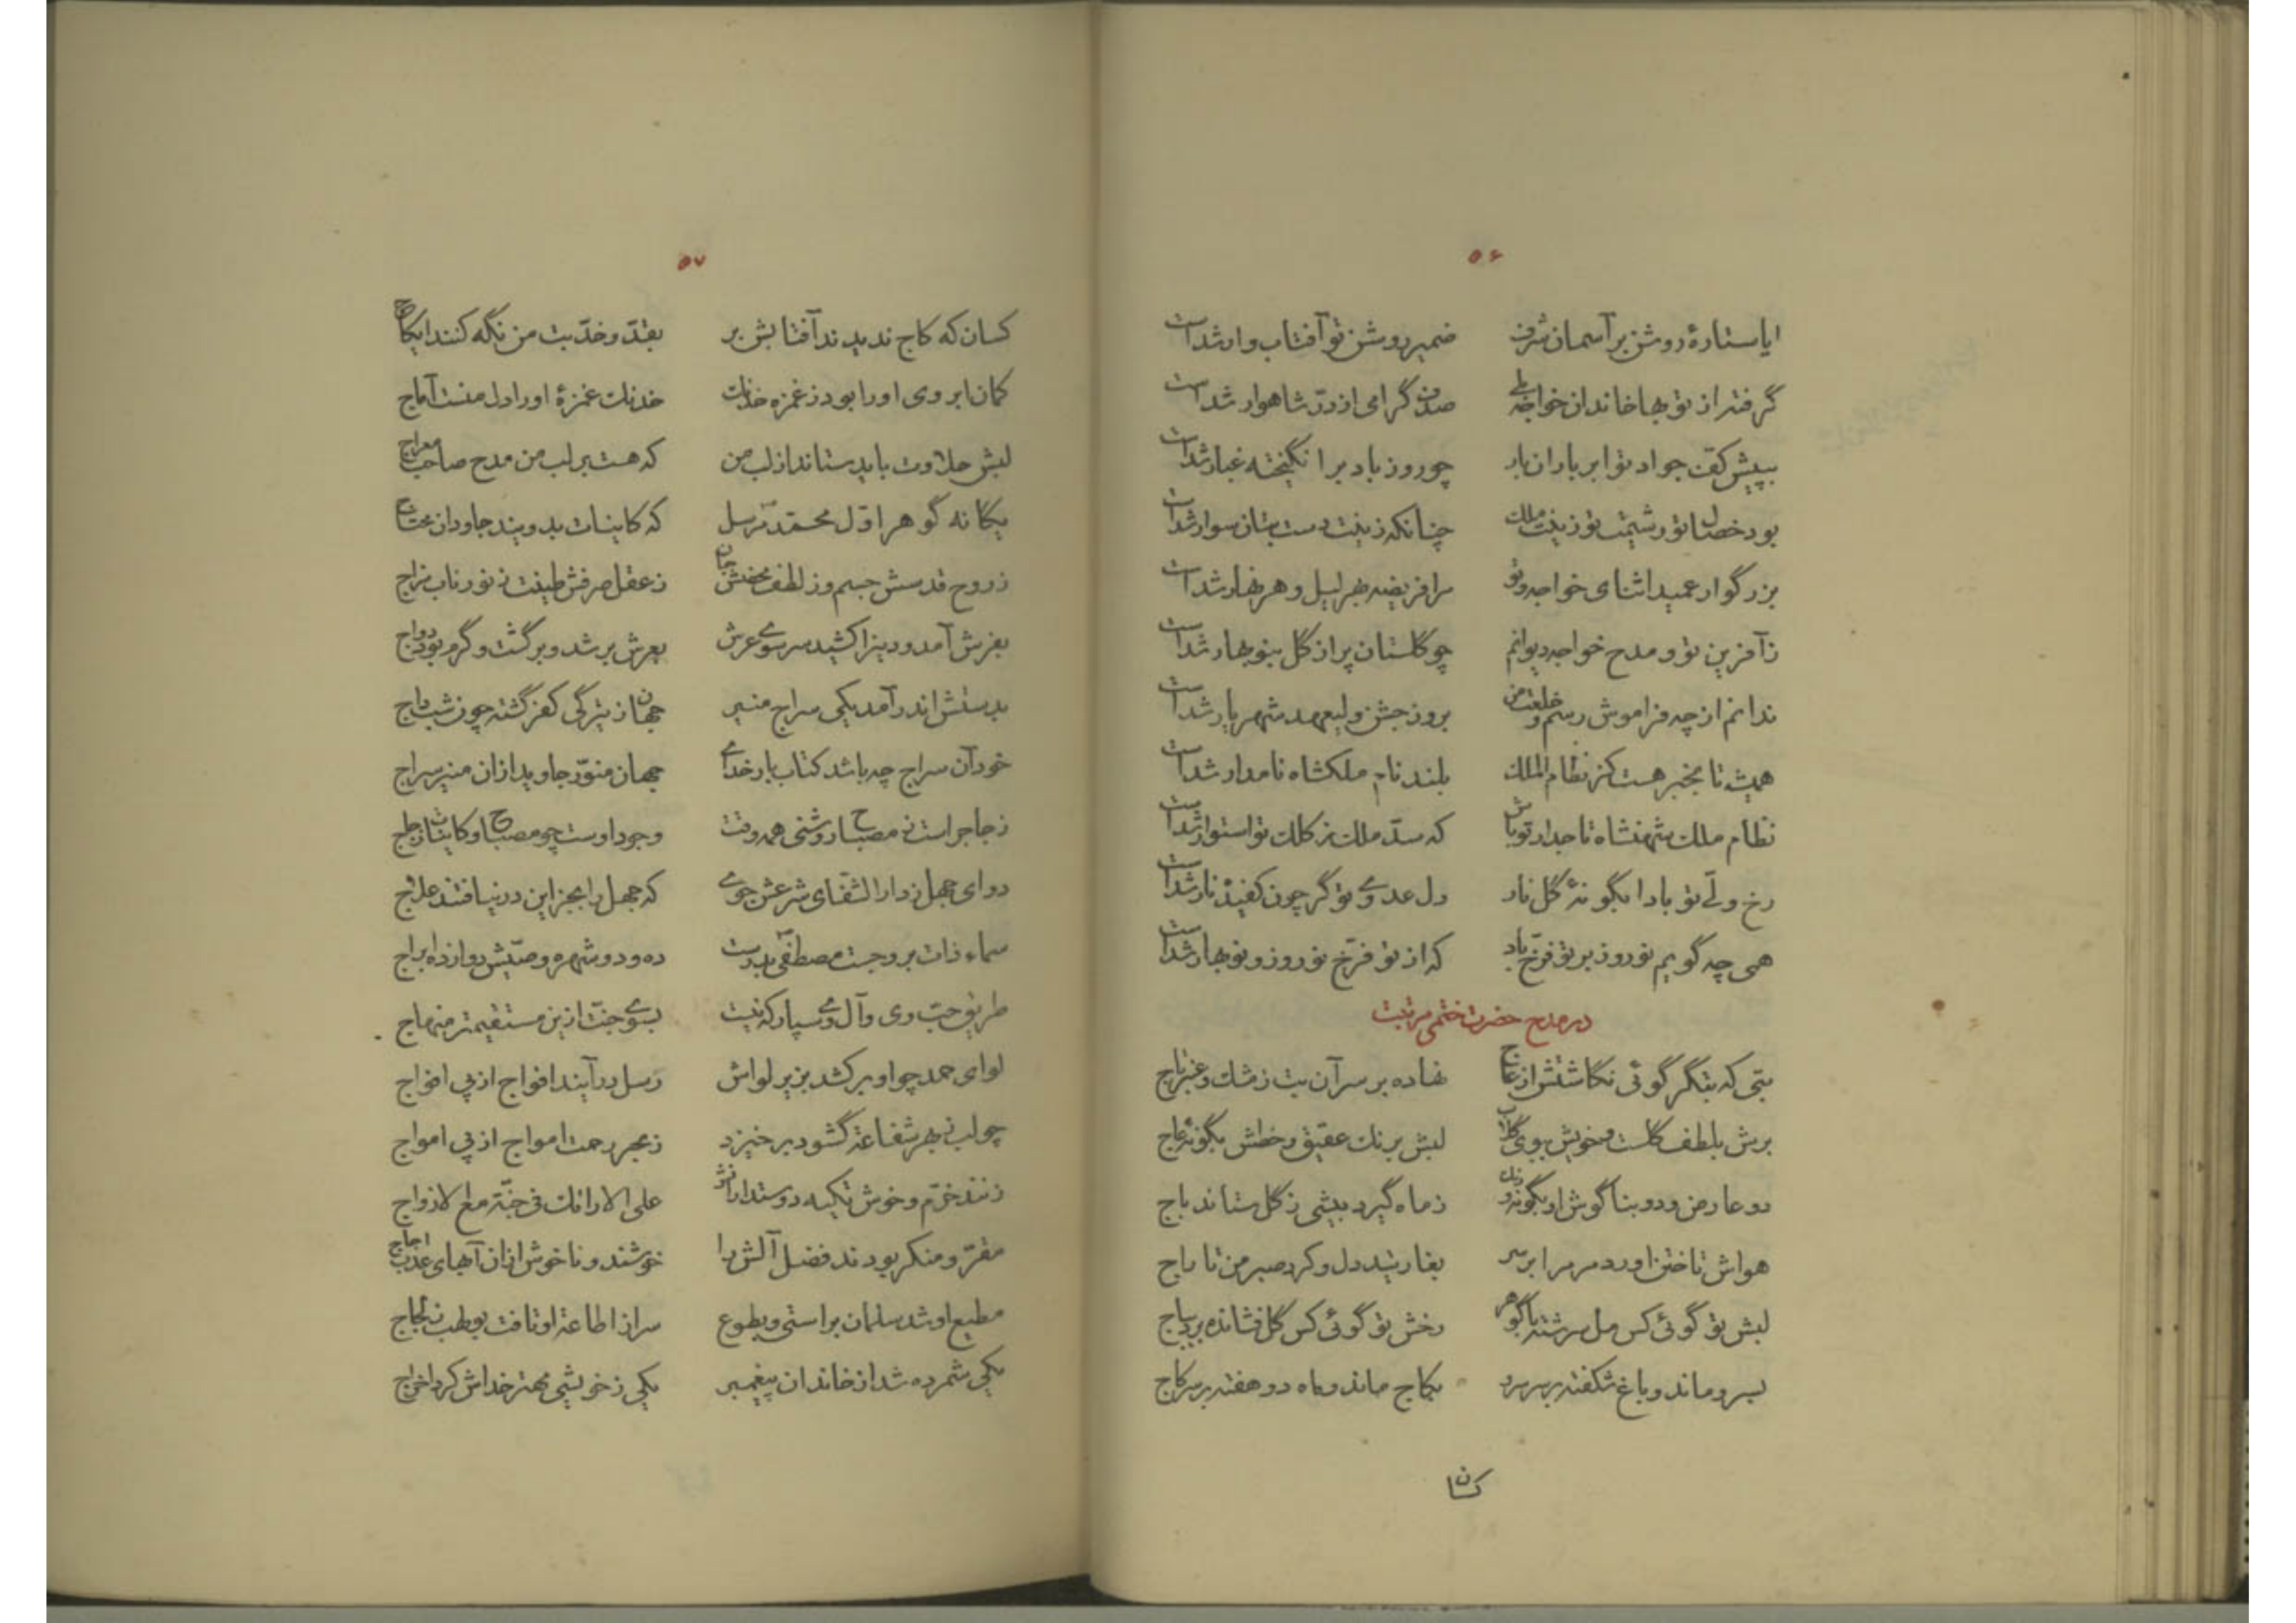 ۵۶
ایا ستارهٔ روشن بر آسمان شرف ضمیر روشن تو آفتاب وار شداست
گرفته از تو بها خاندان خواجه علی صدف گرامی از درّ شاهوار شداست
بپیش کف جواد تو ابر باران بار چو روز باد برانگیخته غبار شداست
بود خصال تو و شیمت تو زینت ملک چنانکه زینت دست بتان سوار شداست
بزرگوار عمیدا ثنای خواجه و تو مرا فریضه بهر لیل و هر نهار شداست
ز آفرین تو و مدح خواجه دیوانم چو گلستان پر از گل بنوبهار شداست
ندانم از چه فراموش رسم و خلعت من بروز جشن ولیعهد شهریار شداست
همیشه تا بخبر هست کز نظام الملک بلند نام ملکشاه نامدار شداست
نظام ملک شهنشاه تاجدار تو باش که سدّ ملک ز کلک تو استوار شداست
رخ ولّی تو بادا بگونهٔ گل نار دل عدوی تو گر چون کفیده نار شداست
همی چه گویم نوروز بر تو فرّخ باد که از تو فرّخ نوروز و نوبهار شداست
در مدح حضرت ختمی مرتبت
بتی که بتگر گوئی نگاشتش از عاج نهاده بر سر آن بت ز مشک و عنبر تاج
برش بلطف گلست و بخویش بوی گلاب لبش برنک عقیق و خطش بگونهٔ عاج
دو عارض و دو بناگوش او بگونه و رنک ز ماه گیرد بیشی ز گل ستاند باج
هواش تاختن اورد مر مرا بر سر بغارتید دل و کرد صبر من تاراج
لبش تو گوئی کس مل سرشته با گوهر رخش تو گوئی کس گل فشانده بر دیباج
بسرو ماند و باغ شکفته بر سر سرو بکاج ماند و ماه دو هفته بر سر کاج
کسان
۵۷
کسان که کاج ندیدند آفتابش بر بقدّ و خدّ بت من نگه کنند ایکاج
کمان ابروی او را بود ز غمزه خدنک خدنک غمزهٔ او را دل منست آماج
لبش حلاوت باید ستاند از لب من که هست بر لب من مدح صاحب معراج
یگانه گوهر اوّل محمّد مرسل که کاینات بدویند جاودان محتاج
ز روح قدسش جسم و ز لطف محضش جان ز عقل صرفش طینت ز نور ناب مزاج
بفرش آمد و دین را کشید سر سوی عرش بعرش بر شد و برگشت و گرم بود دواج
بدستش اندر آمد یکی سراج منیر جهان ز تیرگی کفر گشته چون شب داج
خود آن سراج چه باشد کتاب بار خدای جهان منوّر جاوید از ان منیر سراج
زجاجراست ز مصباح روشنی همه وقت وجود اوست چو مصباح و کاینات زجاج
دوای جهل ز دار الشفای شرعش جوی که جهل را بجز این در نیافتند علاج
سماء ذات بروجست مصطفی بدرست ده و دو شهره وصیّش دوازده ابراج
طریق حبّ وی و آل وی سپار که نیست بسوی جنّت ازین مستقیم‌تر منهاج
لوای حمد چو او برکشد بزیر لواش رسل در آیند افواج از پی افواج
چو لب ز بهر شفاعة گشود بر خیزد ز بحر رحمت امواج از پی امواج
زنند خرّم و خوش تکیه دوستدارانش علی الارائک فی جنّة مع الازواج
مقرّ و منکر بودند فضل آلش را خوشند و ناخوش از ان آبهای عذب اجاج
مطیع او شد سلمان براستی و بطوع سر از اطاعة او تافت بولهب ز لجاج
یکی شمرده شد از خاندان پیغمبر یکی ز خویشی مهتر خداش کرد اخراج